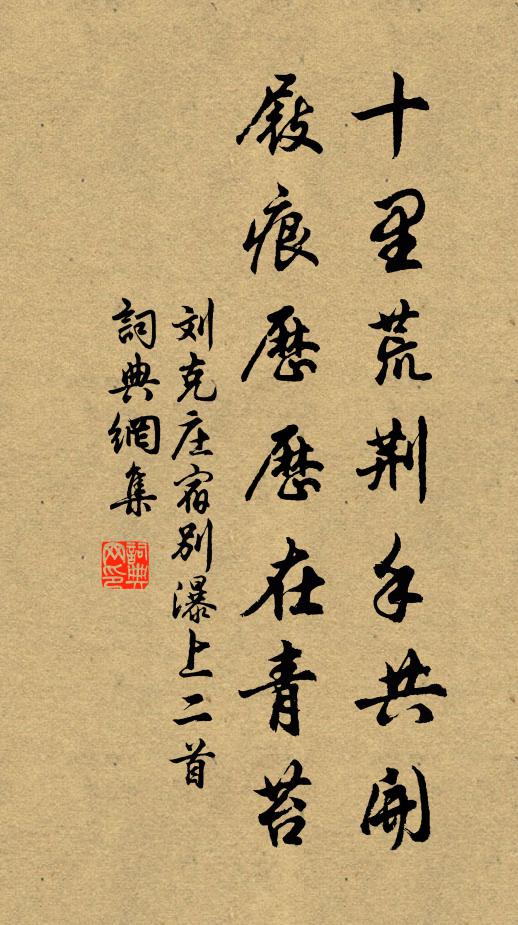 十里荒荆手共開
屐痕歷歷在青苔
刘克庄宿别瀑上二首
詞典網集
詞典網印